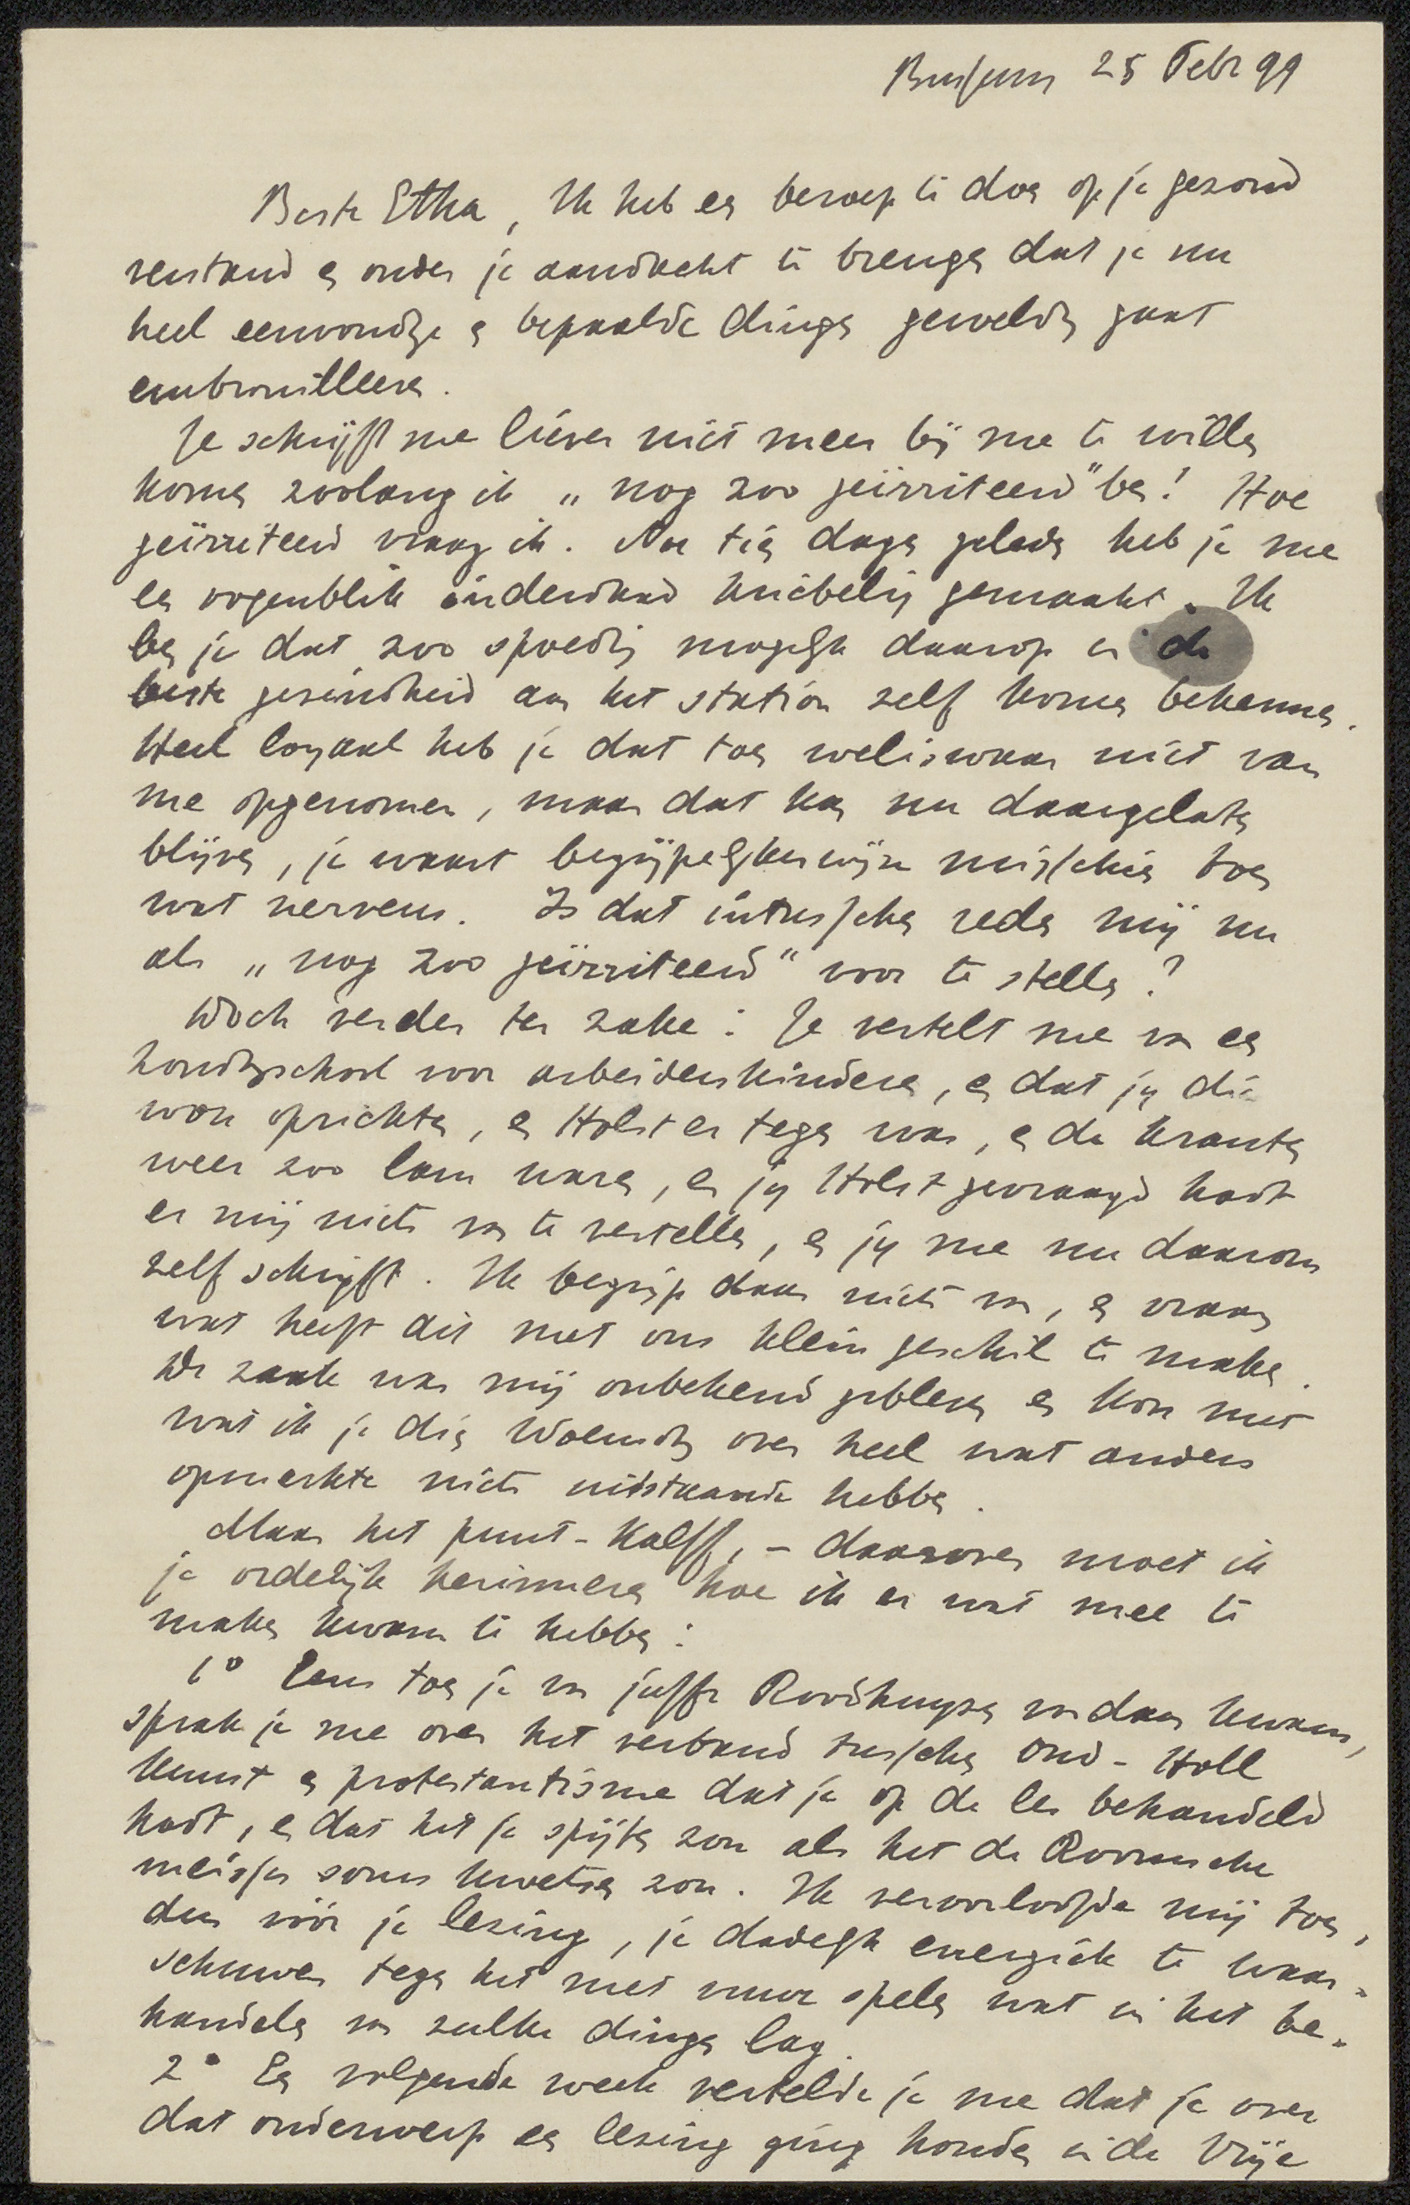 Bussum 25 Febr 99
Beste Etha, Ik heb een beroep te doen op je gezond
verstand en onder je aandacht te brengen dat je nu
heel eenvoudige en bepaalde dingen geweldig gaat
embrouilleeren.
Je schrijft me liever niet meer bij me te willen
komen zoolang ik „nog zoo geïrriteerd" ben! Hoe
geïrriteerd vraag ik. Nu tien dagen geleden heb je me
een oogenblik inderdaad kribbelig gemaakt. Ik
ben je dat zoo spoedig mogelijk daarop in de
beste gezindheid aan het station zelf komen bekennen.
Heel loyaal heb je dat toen weliswaar niet van
me opgenomen, maar dat kan nu daargelaten
blijven, je waart begrijpelijkerwijze misschien toen
wat nerveus. Is dat intusschen reden mij nu
als „nog zoo geïrriteerd" voor te stellen?
Doch verder ter zake: Je vertelt me van een
Zondagschool voor arbeiderskinderen, en dat jy die
wou oprichten, en Holst er tegen was, en de kranten
weer zoo lam waren, en jy Holst gevraagd hadt
er mij niets van te vertellen, en jy me nu daarom
zelf schrijft. Ik begrijp daar niets van, en vraag
wat heeft dit met ons klein geschil te maken.
De zaak was mij onbekend gebleven en kon met
wat ik je dien Woensdag over heel wat anders
opmerkte niets uitstaande hebben.
Maar het punt-Kalff, – daarover moet ik
je ordelijk herinneren hoe ik er wat mee te
maken kwam te hebben:
1° Eens toen je van juffr Roodhuyzen vandaan kwam,
sprak je me over het verband tusschen Oud-Holl
kunst en protestantisme dat je op de les behandeld
hadt, en dat het je spijten zou als het de Roomsche
meisjes soms kwetsen zou. Ik veroorloofde mij toen,
dus vóór je lezing, je dadelijk energiek te waar-
schuwen tegen het met vuur spelen wat in het be-
handelen van zulke dingen lag.
2° Een volgende week vertelde je me dat je over
dat onderwerp een lezing ging houden in de Vrije